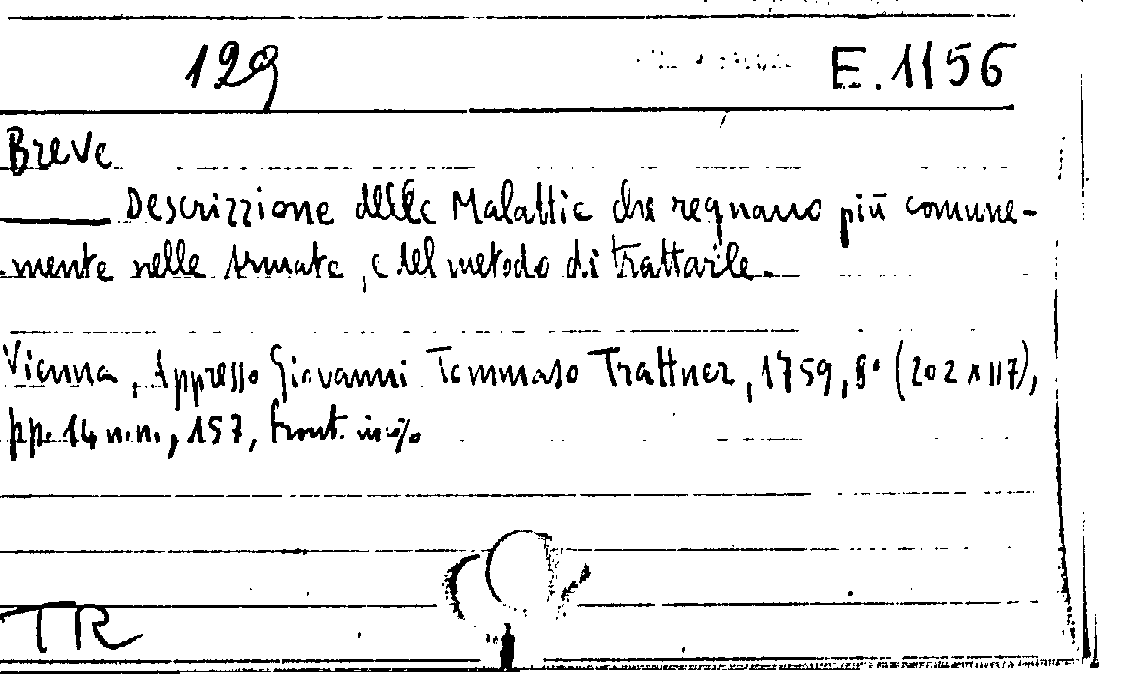 129 E.1156
Breve
Descrizzione delle Malattie che regnano più comune-
mente nelle Armate, e del metodo di trattarle.
Vienna, Appresso Giovanni Tommaso Trattner, 1759, 8° (202 x 117),
pp. 14 n.n., 157, front.
TR